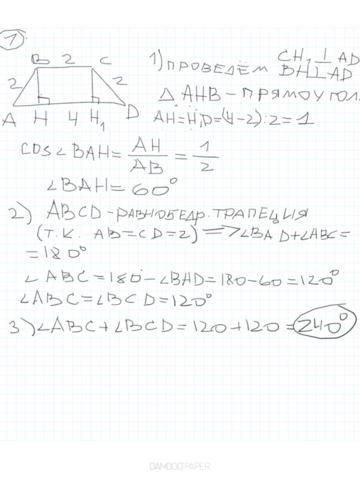 1
B 2 C
2 2
A H 4 H₁ D
1) ПРОВЕДЁМ CH₁⊥AD
BH⊥AD
△AHB-ПРЯМОУГОЛ.
AH=H₁D=(4-2):2=1
cos∠BAH=AH/AB=1/2
∠BAH=60°
2) ABCD-РАВНОБЕДР. ТРАПЕЦИЯ
(Т.К. AB=CD=2) =>∠BAD+∠ABC=
=180°
∠ABC=180-∠BAD=180-60=120°
∠ABC=∠BCD=120°
3)∠ABC+∠BCD=120+120=240°
DAMOOOPAPER